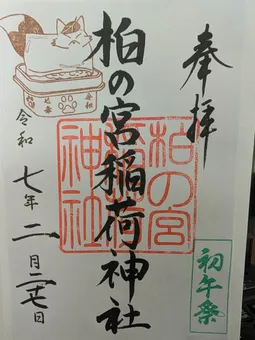 奉拝
柏の宮稲荷神社
柏の宮
稲荷
神社
初午祭
令和七年二月二十七日